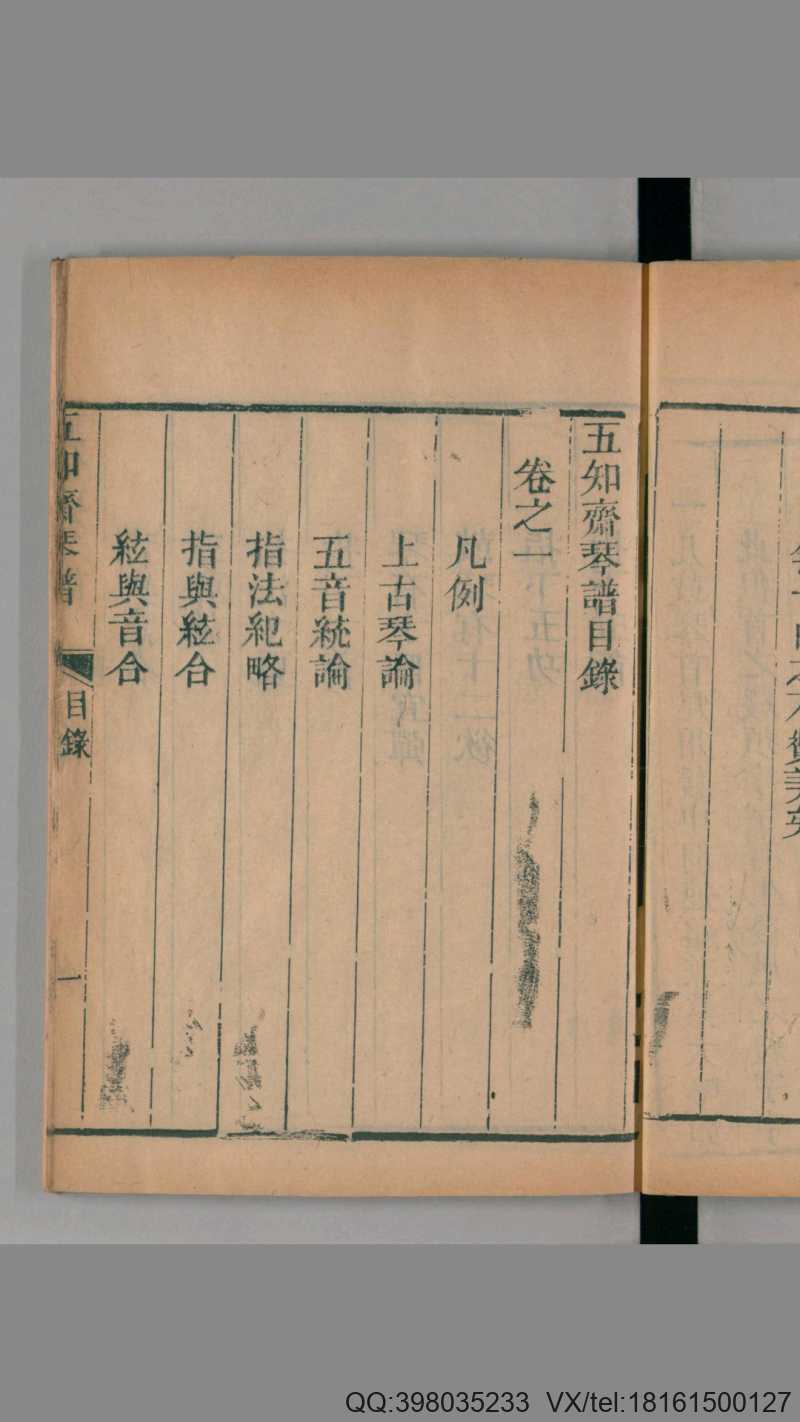 五知齋琴譜目錄
卷之一
凡例
上古琴論
五音統論
指法紀略
指與絃合
絃與音合
五知齋琴譜
目錄
一
QQ:398035233 VX/tel:18161500127